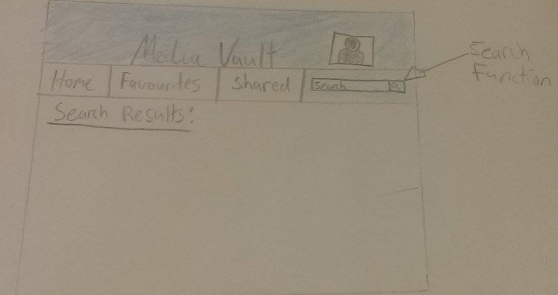 Media Vault
Home Favourites Shared Search
Search Function
Search Results: